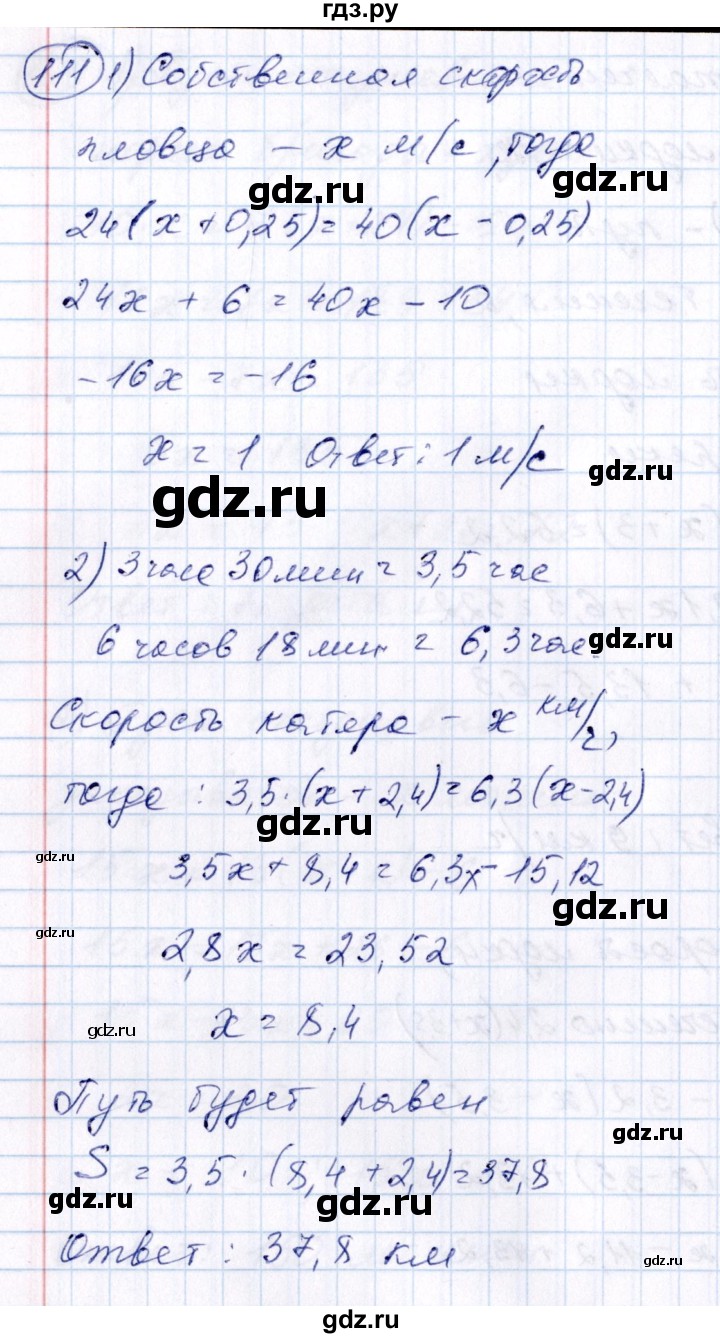 гдз.ру
111 1) Собственная скорость
пловца – x м/с, тогда
gdz.ru
gdz.ru
24(x + 0,25) = 40(x – 0,25)
24x + 6 = 40x – 10
–16x = –16
x = 1 Ответ: 1 м/с
gdz.ru
gdz.ru
2) 3 часа 30 мин = 3,5 час
6 часов 18 мин = 6,3 час.
gdz.ru
Скорость катера – x км/ч,
тогда: 3,5·(x + 2,4) = 6,3(x – 2,4)
gdz.ru
3,5x + 8,4 = 6,3x – 15,12
gdz.ru
gdz.ru
gdz.ru
2,8x = 23,52
x = 8,4
gdz.ru
gdz.ru
Путь будет равен
gdz.ru
S = 3,5·(8,4 + 2,4) = 37,8
gdz.ru
gdz.ru
Ответ: 37,8 км
gdz.ru
gdz.ru